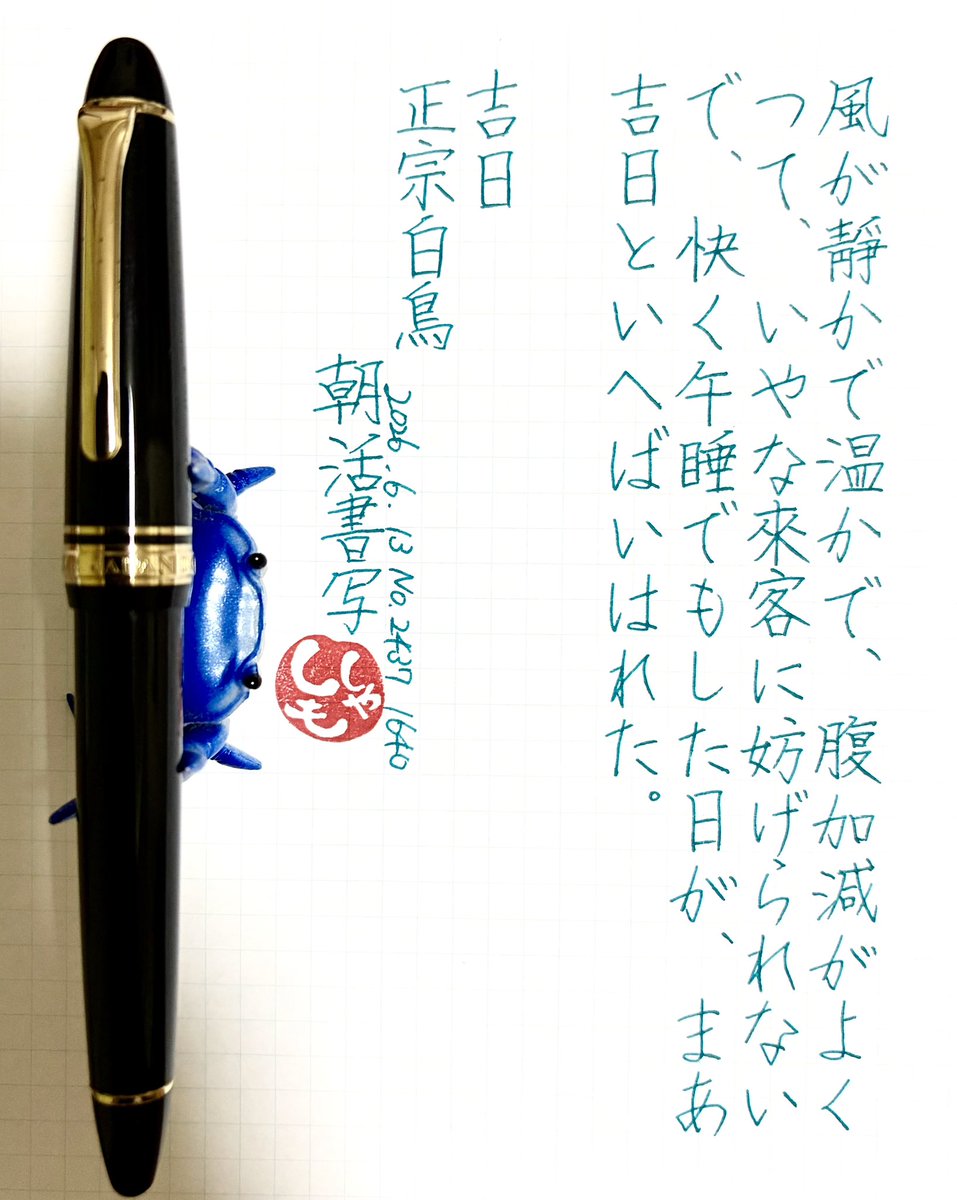 風が靜かで温かで、腹加減がよく
つて、いやな來客に妨げられない
で、快く午睡でもした日が、まあ
吉日といへばいはれた。
吉日
正宗白鳥
2026.6.13 No.2437 1640
朝活書写
しゃ
しも
JAPAN